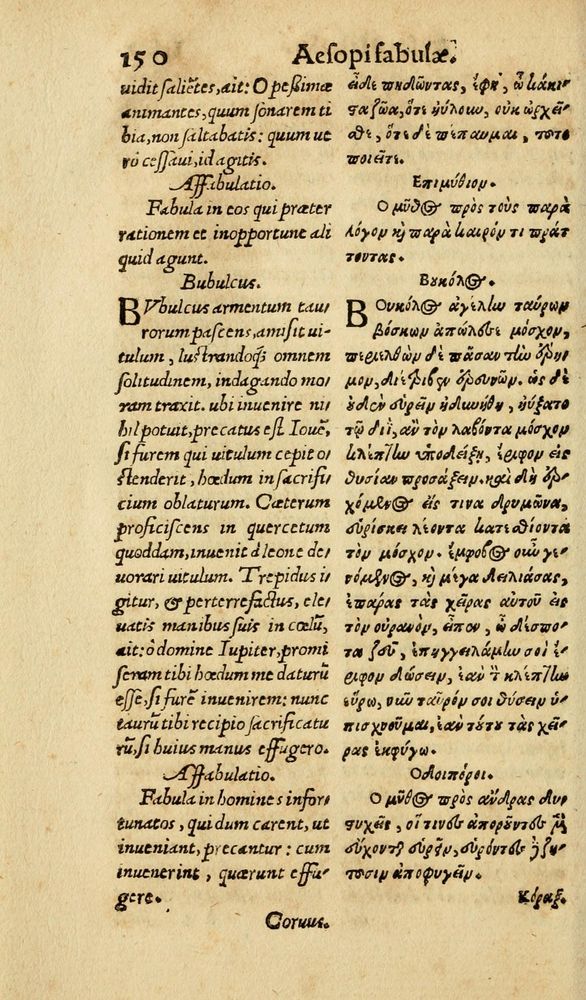 150 Aesopi fabulæ.
uidit saliētes, ait: O peßimæ
animantes, quum sonarem ti
bia, non saltabatis: quum ue
rò cessaui, id agitis.
Affabulatio.
Fabula in eos qui præter
rationem et inopportune ali
quid agunt.
Bubulcus.
BVbulcus armentum tau/
rorum pascens, amisit ui-
tulum, lustrandoq́; omnem
solitudinem, indagando mo/
ram traxit. ubi inuenire ni/
hil potuit, precatus est Iouē,
si furem qui uitulum cepit o/
stenderit, hœdum in sacrifi/
cium oblaturum. Cæterum
proficiscens in quercetum
quoddam, inuenit à leone de/
uorari uitulum. Trepidus i/
gitur, & perterrefactus, ele/
uatis manibus suis in cœlū,
ait: ô domine Iupiter, promi
seram tibi hœdum me daturū
esse, si furē inuenirem: nunc
taurū tibi recipio sacrificatu
rū, si huius manus effugero.
Affabulatio.
Fabula in homines infor/
tunatos, qui dum carent, ut
inueniant, precantur: cum
inuenerint, quærunt effu/
gere.
Coruus.
εἶδε πηδῶντας, ἔφη, ὦ κάκι-
στα ζῶα, ὅτε ηὔλουν, οὐκ ὠρχεῖ-
σθε, ὅτε δὲ πέπαυμαι, τοῦτο
ποιεῖτε.
Επιμύθιον.
Ο μῦθος πρὸς τοὺς παρὰ
λόγον καὶ παρὰ καιρόν τι πράτ
τοντας.
Βουκόλος.
ΒΟυκόλος ἀγέλην ταύρων
βόσκων ἀπώλεσε μόσχον,
περιελθὼν δὲ πᾶσαν τὴν ἔρη-
μον, διέτριβεν ἐρευνῶν. ὡς δὲ
οὐδὲν εὑρεῖν ἠδυνήθη, ηὔξατο
τῷ διῒ, ἂν τὸν λαβόντα μόσχον
κλέπτην ὑποδείξῃ, ἔριφον εἰς
θυσίαν προσάξειν. καὶ δὴ ἐρ
χόμενος εἴς τινα δρυμῶνα,
εὑρίσκει λέοντα κατεσθίοντα
τὸν μόσχον. ἔμφοβος οὖν γε-
νόμενος, καὶ μέγα δειλιάσας,
ἐπάρας τὰς χεῖρας αὐτοῦ εἰς
τὸν οὐρανὸν, εἶπεν, ὦ δέσπο-
τα ζεῦ, ἐπηγγειλάμην σοι ἔ-
ριφον δώσειν, ἐὰν τὸν κλέπτην
εὕρω, νῦν ταῦρόν σοι θύσειν ὑ-
πισχνοῦμαι, ἐὰν τούτου τὰς χεῖ-
ρας ἐκφύγω.
Οδοιπόροι.
Ο μῦθος πρὸς ἄνδρας δυσ-
τυχεῖς, οἵτινες ἀποροῦντες μὲν
εὔχονται εὑρεῖν, εὑρόντες δὲ ζη-
τοῦσιν ἀποφυγεῖν.
Κόραξ.